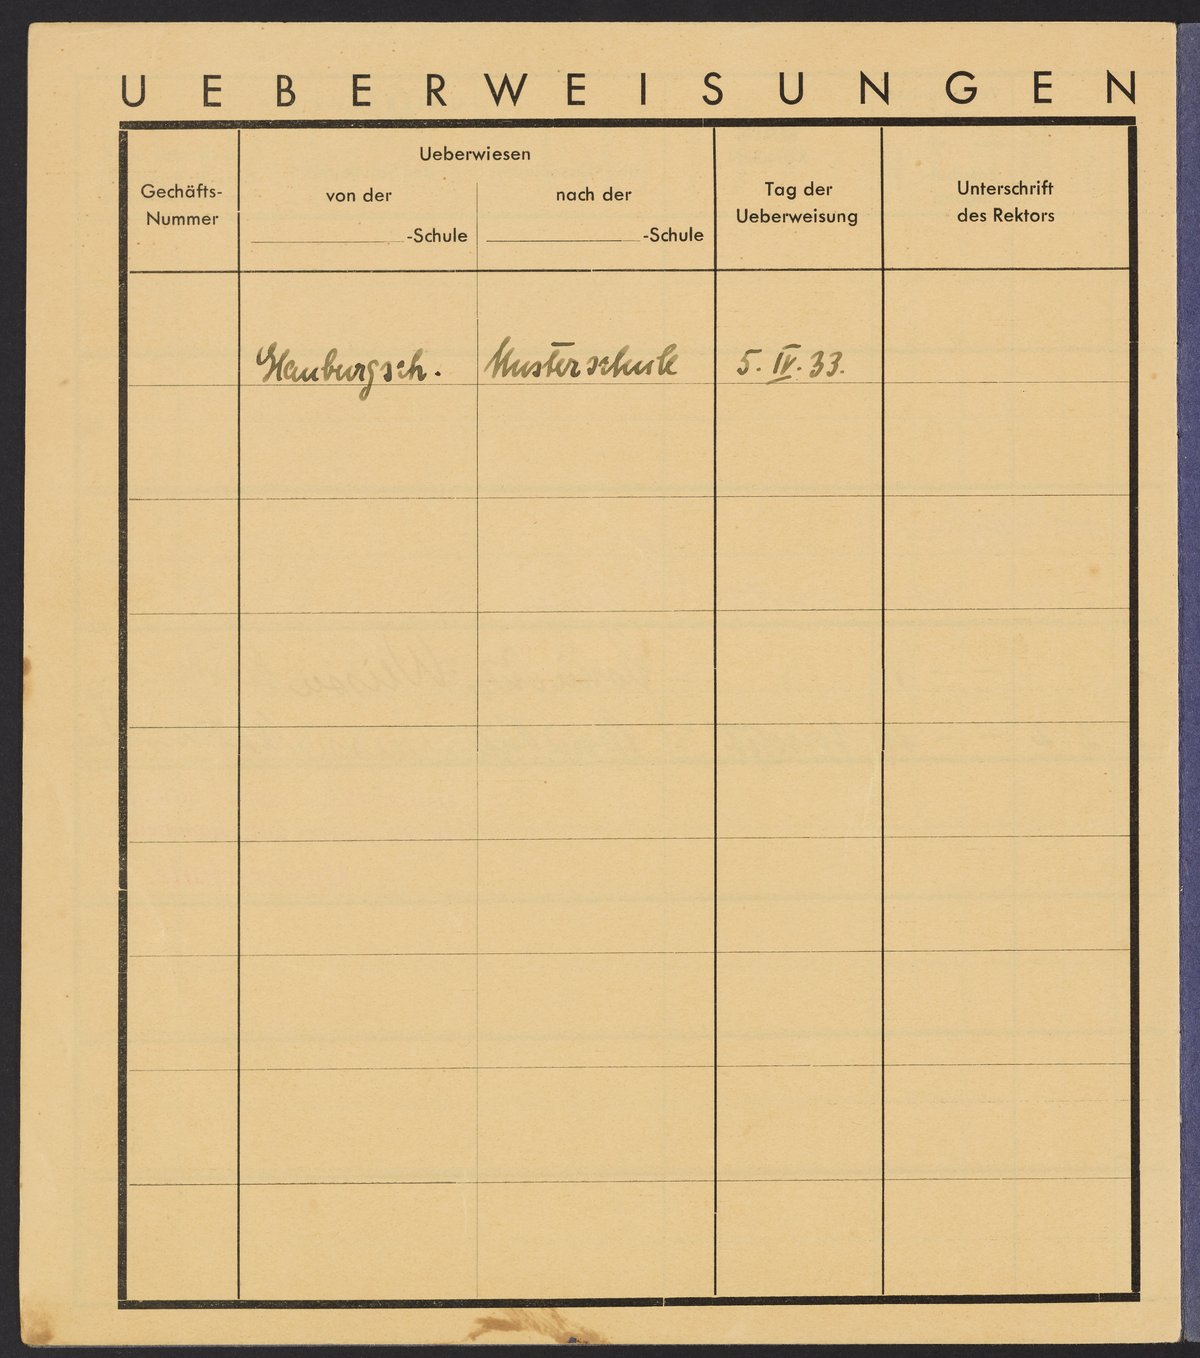 UEBERWEISUNGEN
Gechäfts-
Nummer
Ueberwiesen
von der
-Schule
nach der
-Schule
Tag der
Ueberweisung
Unterschrift
des Rektors
Glauburgsch. Musterschule 5. IV. 33.